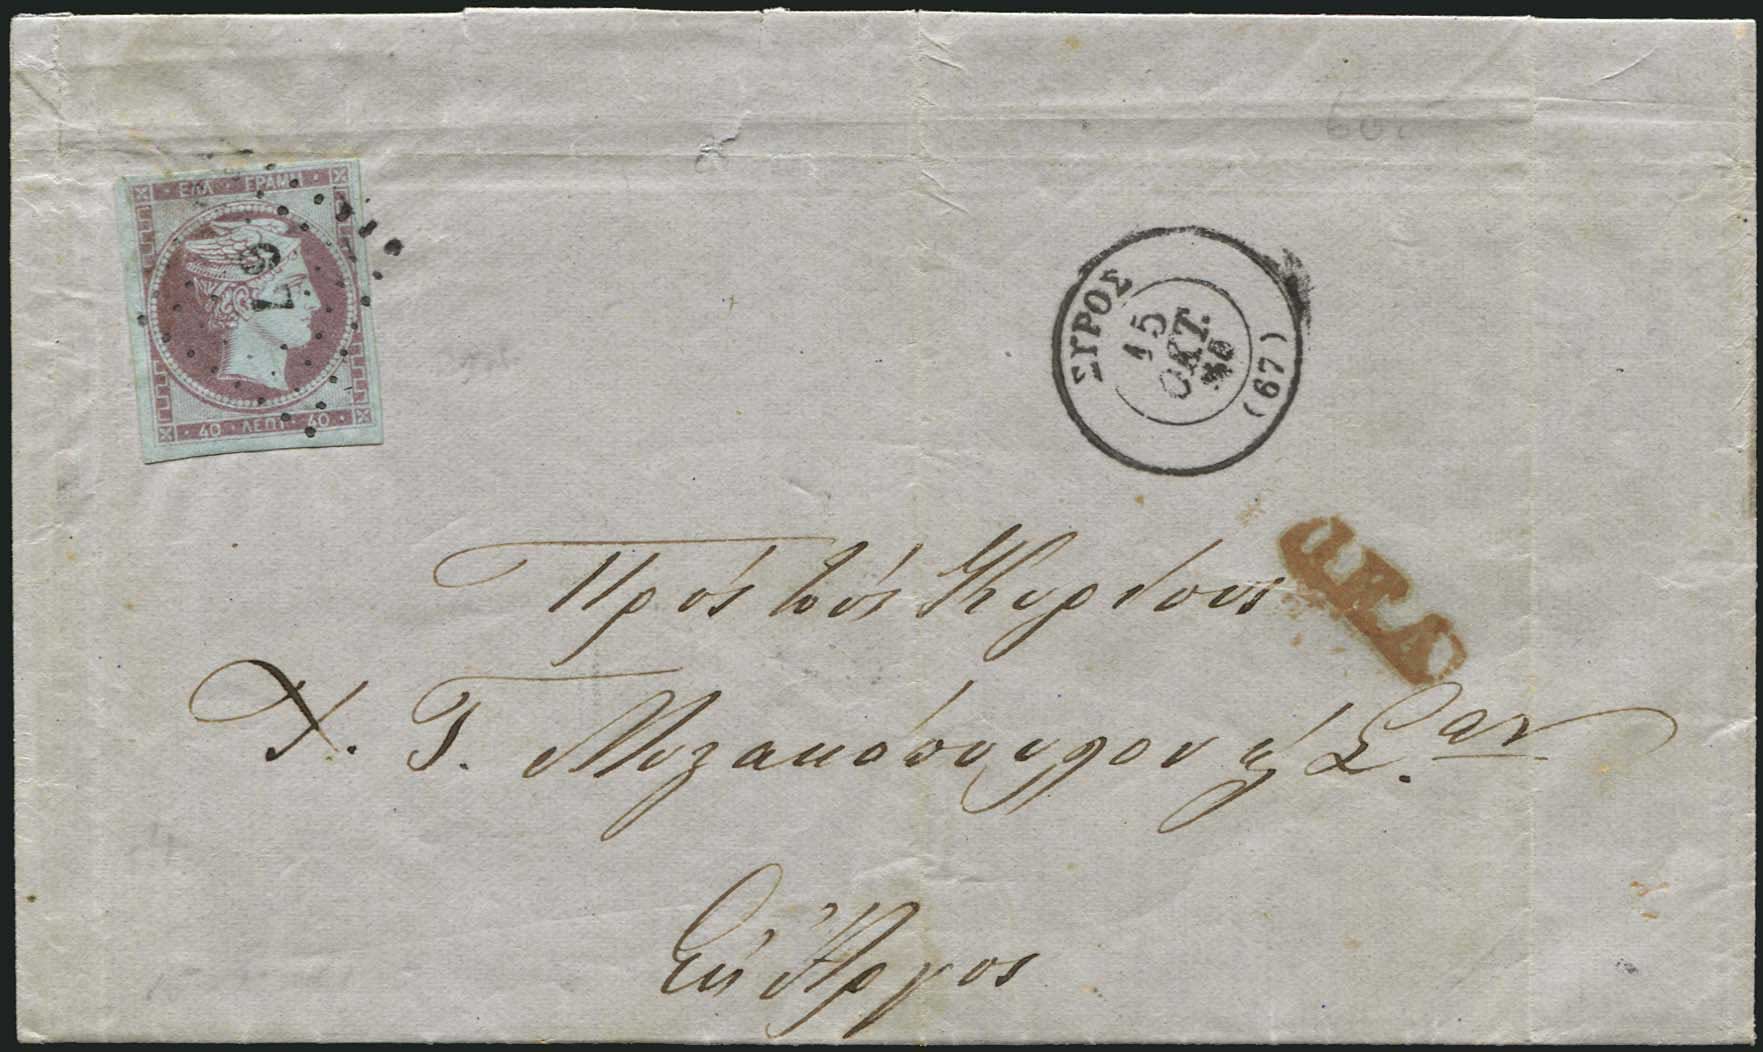 ΕΛΛ · ΓΡΑΜΜ
67
40 · ΛΕΠΤ · 40
ΣΥΡΟΣ
15
ΟΚΤ.
(67)
Πρὸς τοὺς Κυρίους
Χ. Γ.
Σ.αν
Εἰς Ἄργος